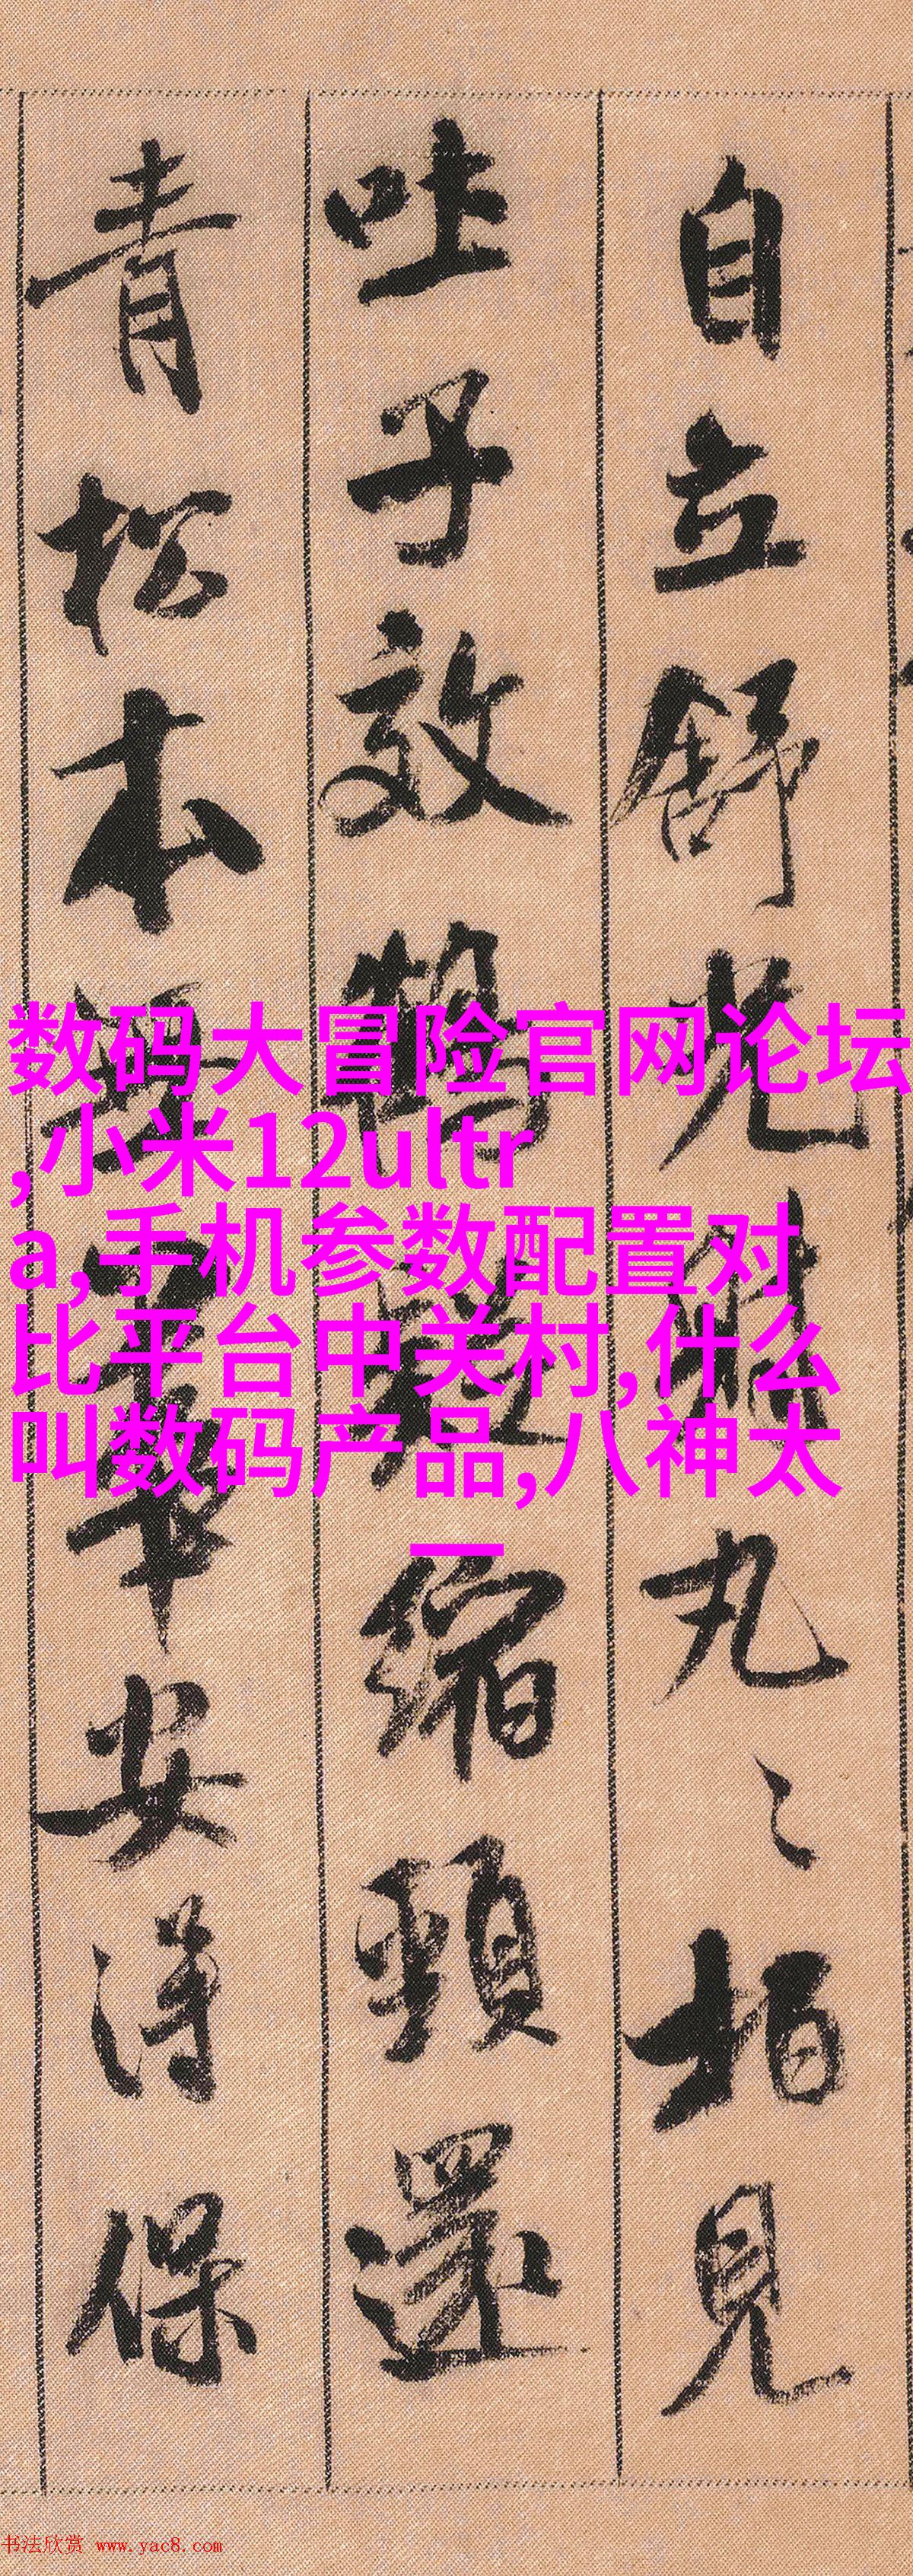 自立舒光射丸〻柏見
吐子效鶴疑縮頸還
青松本無華安得保
数码大冒险官网论坛
,小米12ultr
a,手机参数配置对
比平台中关村,什么
叫数码产品,八神太
一
书法欣赏 www.yac8.com